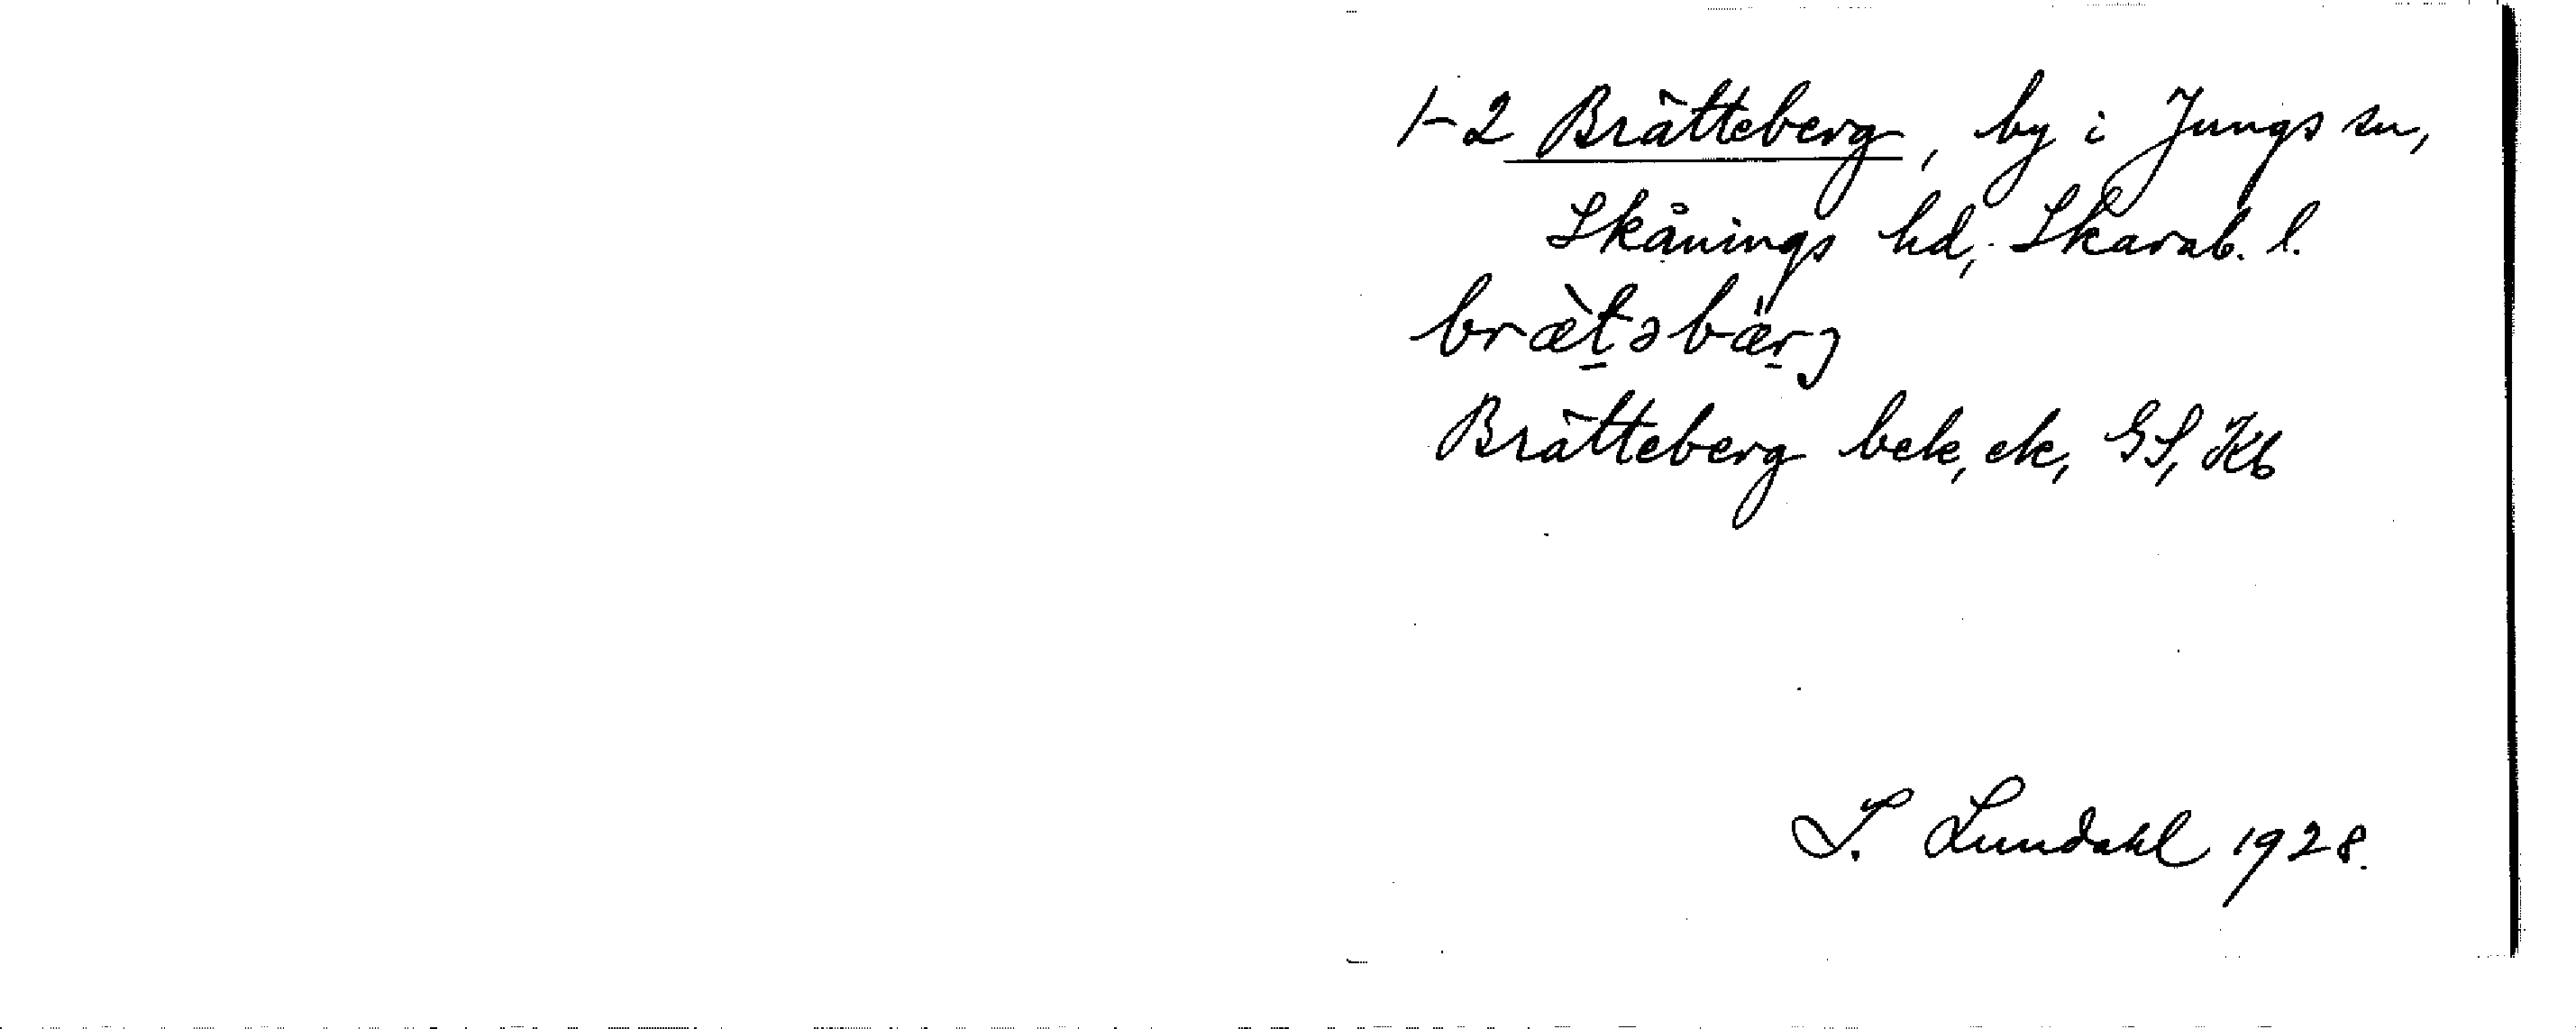 1-2 Brätteberg, by i Jungs sn,
Skånings hd, Skarab. l.
bræ̀t̠əbär̠j
Brätteberg bek, ek, GS, Kb
I. Lundahl 1928.